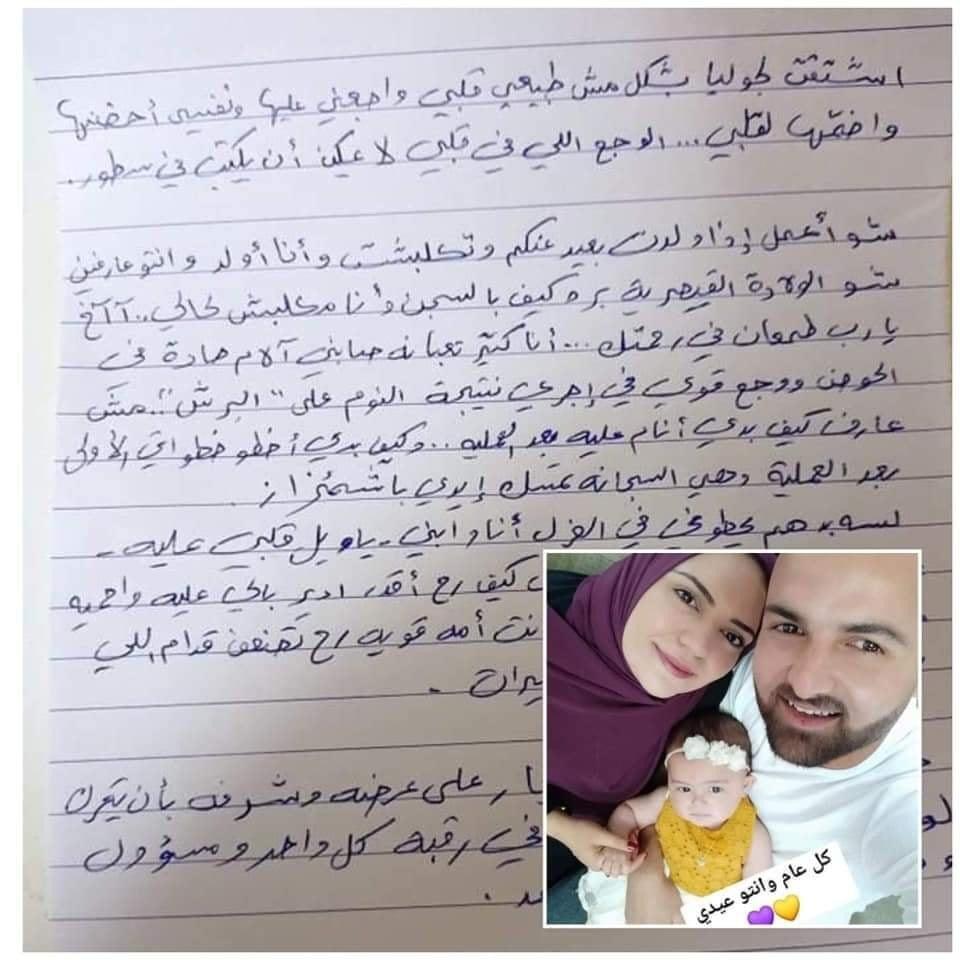 اشتقت لجوليا بشكل مش طبيعي قلبي واجعني عليها ونفسي أحضنها
واضمّها لقلبي... الوجع اللي في قلبي لا يمكن أن يكتب في سطور.
شو أعمل إذا ولدت بعيد عنكم وتكلبشت وأنا أولد وانتو عارفين
شو الولادة القيصرية بره كيف بالسجن وأنا مكلبش لحالي.. آآآخ
يا رب طمعان في رحمتك... أنا كثير تعبانه صابني آلام حادة في
الحوض ووجع قوي في إجري نتيجة النوم على "البرش".. مش
عارف كيف بدي أنام عليه بعد العملية.. وكيف بدي أخطو خطواتي الأولى
بعد العملية وهي السجانه تمسك إيدي باشمئزاز.
لسه بدهم يحطوني في العزل أنا وابني - يا ويل قلبي عليه -
كيف رح أقدر ادير بالي عليه واحميه
أمه قويه رح تضعف قدام اللي
على عرضه وشرفه بأن يتحرك
في رقبة كل واحد ومسؤول
كل عام وانتو عيدي